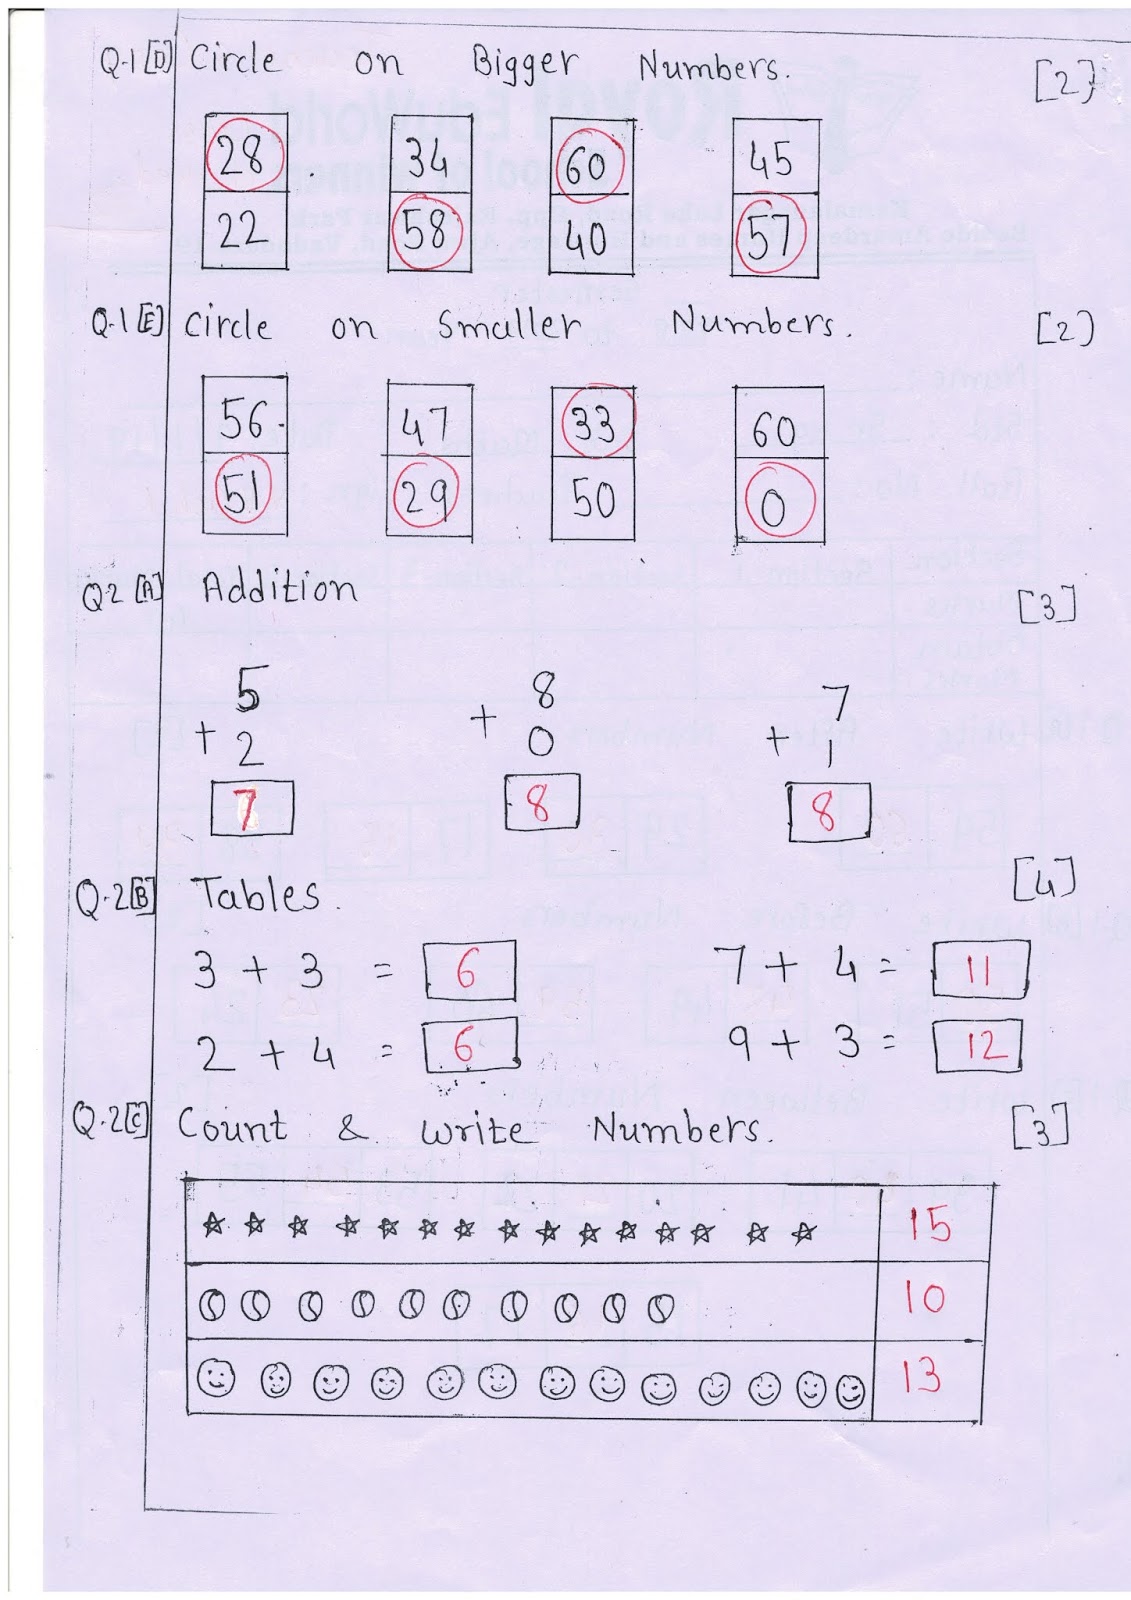 Q.1 [D] Circle on Bigger Numbers. [2]
28 34 60 45
22 58 40 57
Q.1 [E] Circle on Smaller Numbers. [2]
56 47 33 60
51 29 50 0
Q.2 [A] Addition [3]
5 8 7
+ 2 + 0 + 1
7 8 8
Q.2 [B] Tables. [4]
3 + 3 = 6 7 + 4 = 11
2 + 4 = 6 9 + 3 = 12
Q.2 [C] Count & write Numbers. [3]
15
10
13